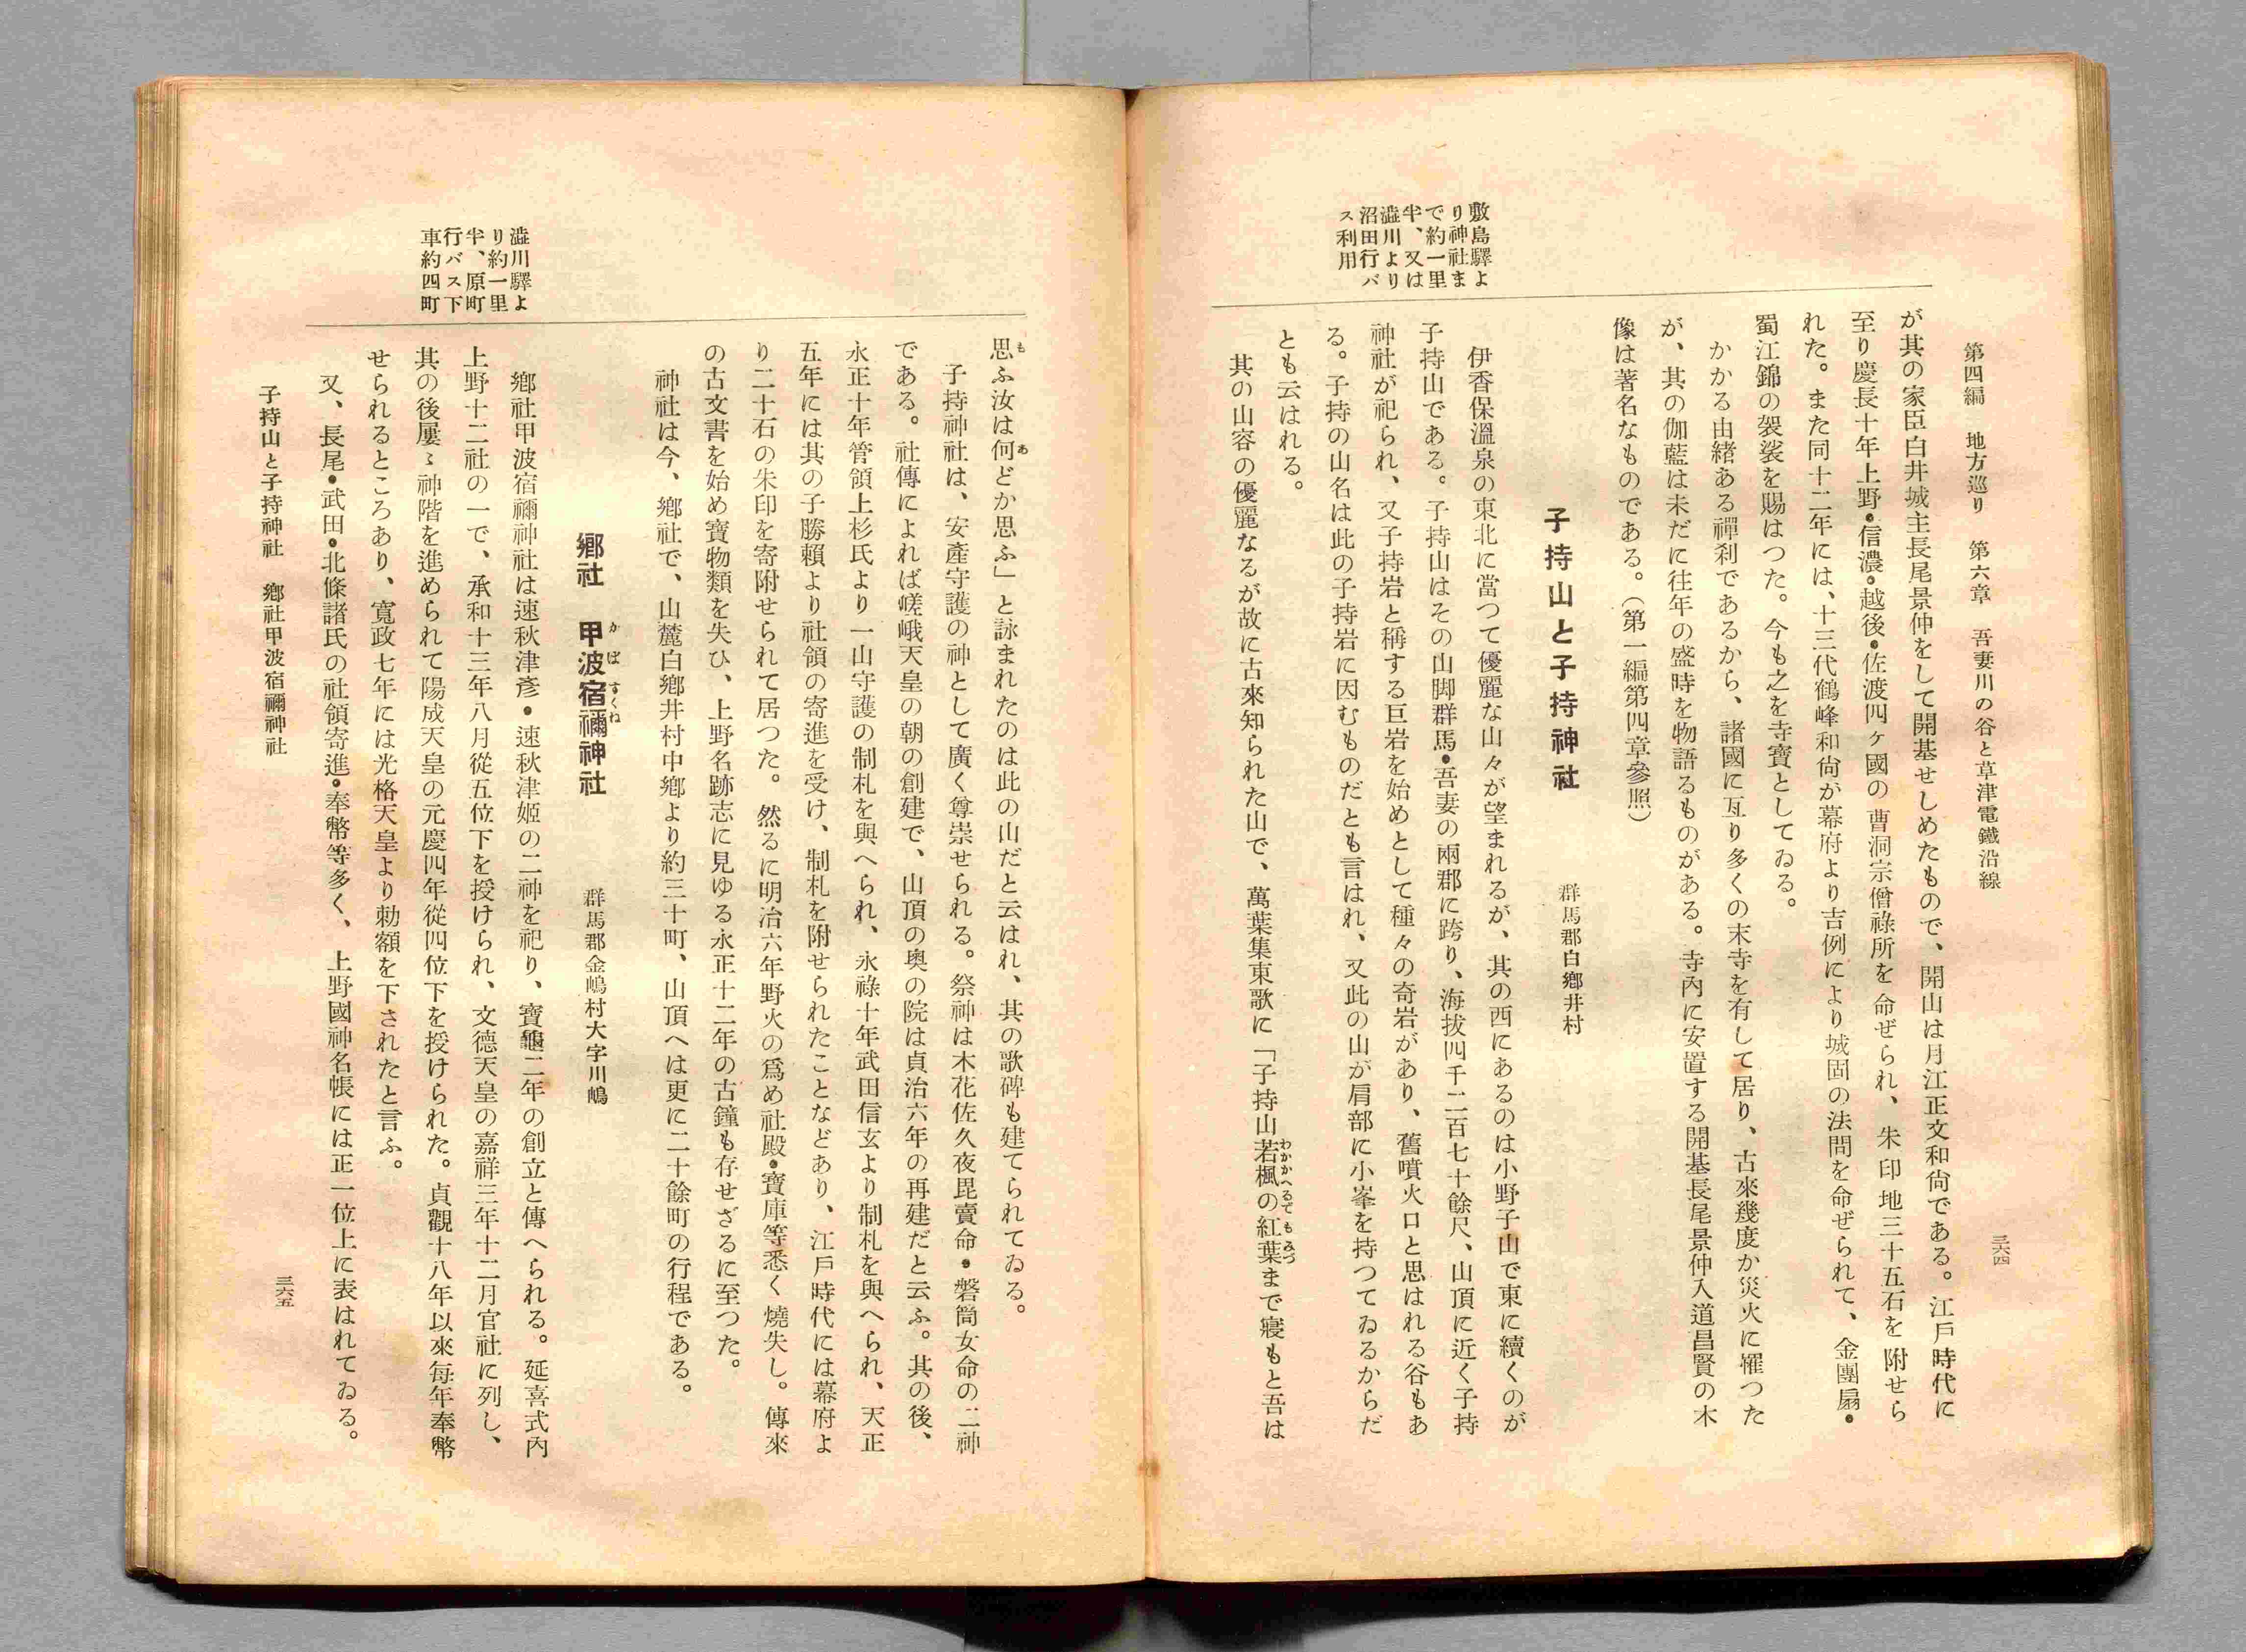 第四編　地方巡り　第六章　吾妻川の谷と草津電鐵沿線
三六四
が其の家臣白井城主長尾景仲をして開基せしめたもので、開山は月江正文和尙である。江戸時代に
至り慶長十年上野・信濃・越後・佐渡四ヶ國の曹洞宗僧祿所を命ぜられ、朱印地三十五石を附せら
れた。また同十二年には、十三代鶴峰和尙が幕府より吉例により城固の法問を命ぜられて、金團扇・
蜀江錦の袈裟を賜はつた。今も之を寺寶としてゐる。
かかる由緖ある禪刹であるから、諸國に亙り多くの末寺を有して居り、古來幾度か災火に罹つた
が、其の伽藍は未だに往年の盛時を物語るものがある。寺內に安置する開基長尾景仲入道昌賢の木
像は著名なものである。（第一編第四章參照）
子持山と子持神社
群馬郡白鄕井村
敷島驛よ
り神社ま
で約一里
半、又は
澁川より
沼田行バ
ス利用
伊香保溫泉の東北に當つて優麗な山々が望まれるが、其の西にあるのは小野子山で東に續くのが
子持山である。子持山はその山脚群馬・吾妻の兩郡に跨り、海拔四千二百七十餘尺、山頂に近く子持
神社が祀られ、又子持岩と稱する巨岩を始めとして種々の奇岩があり、舊噴火口と思はれる谷もあ
る。子持の山名は此の子持岩に因むものだとも言はれ、又此の山が肩部に小峯を持つてゐるからだ
とも云はれる。
其の山容の優麗なるが故に古來知られた山で、萬葉集東歌に「子持山若楓の紅葉まで寢もと吾は
わかかへるで　もみづ
思ふ汝は何どか思ふ」と詠まれたのは此の山だと云はれ、其の歌碑も建てられてゐる。
も　あ
子持神社は、安產守護の神として廣く尊崇せられる。祭神は木花佐久夜毘賣命・磐筒女命の二神
である。社傳によれば嵯峨天皇の朝の創建で、山頂の奧の院は貞治六年の再建だと云ふ。其の後、
永正十年管領上杉氏より一山守護の制札を與へられ、永祿十年武田信玄より制札を與へられ、天正
五年には其の子勝賴より社領の寄進を受け、制札を附せられたことなどあり、江戸時代には幕府よ
り二十石の朱印を寄附せられて居つた。然るに明治六年野火の爲め社殿・寶庫等悉く燒失し。傳來
の古文書を始め寶物類を失ひ、上野名跡志に見ゆる永正十二年の古鐘も存せざるに至つた。
神社は今、鄕社で、山麓白鄕井村中鄕より約三十町、山頂へは更に二十餘町の行程である。
鄕社　甲波宿禰神社
か　ば　すくね
群馬郡金嶋村大字川嶋
澁川驛よ
り約一里
半、原町
行バス下
車約四町
鄕社甲波宿禰神社は速秋津彥・速秋津姬の二神を祀り、寶龜二年の創立と傳へられる。延喜式內
上野十二社の一で、承和十三年八月從五位下を授けられ、文德天皇の嘉祥三年十二月官社に列し、
其の後屢〻神階を進められて陽成天皇の元慶四年從四位下を授けられた。貞觀十八年以來每年奉幣
せられるところあり、寬政七年には光格天皇より勅額を下されたと言ふ。
又、長尾・武田・北條諸氏の社領寄進・奉幣等多く、上野國神名帳には正一位上に表はれてゐる。
子持山と子持神社　鄕社甲波宿禰神社
三六五